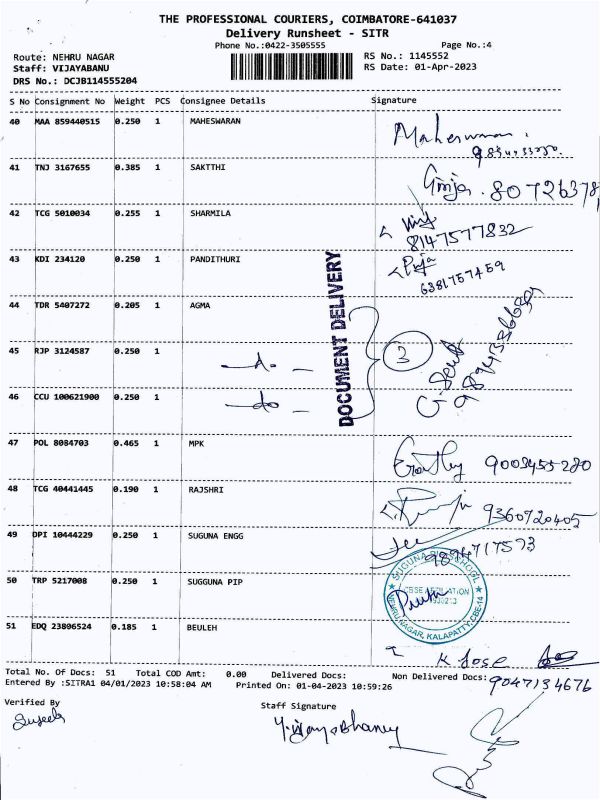 THE PROFESSIONAL COURIERS, COIMBATORE-641037
Delivery Runsheet - SITR
Phone No.:0422-3505555 Page No.:4
Route: NEHRU NAGAR RS No.: 1145552
Staff: VIJAYABANU RS Date: 01-Apr-2023
DRS No.: DCJB114555204
S No Consignment No Weight PCS Consignee Details Signature
40 MAA 859440515 0.250 1 MAHESWARAN
Maheswaran
41 TNJ 3167655 0.385 1 SAKTTHI
Girija. 80726378
42 TCG 5010034 0.255 1 SHARMILA
8147577832
43 KDI 234120 0.250 1 PANDITHURI
Puja
6381757459
44 TDR 5407272 0.205 1 AGMA
DOCUMENT DELIVERY
3
45 RJP 3124587 0.250 1
46 CCU 100621900 0.250 1 do
47 POL 8084703 0.465 1 MPK
9003455280
48 TCG 40441445 0.190 1 RAJSHRI
9360720405
49 DPI 10444229 0.250 1 SUGUNA ENGG
9894717573
50 TRP 5217008 0.250 1 SUGGUNA PIP
SUGUNA PIP SCHOOL
NEHRU NAGAR, KALAPATTY, CBE-14
51 EDQ 23896524 0.185 1 BEULEH
K Jose
Total No. Of Docs: 51 Total COD Amt: 0.00 Delivered Docs: Non Delivered Docs: 9047134676
Entered By :SITRA1 04/01/2023 10:58:04 AM Printed On: 01-04-2023 10:59:26
Verified By Staff Signature